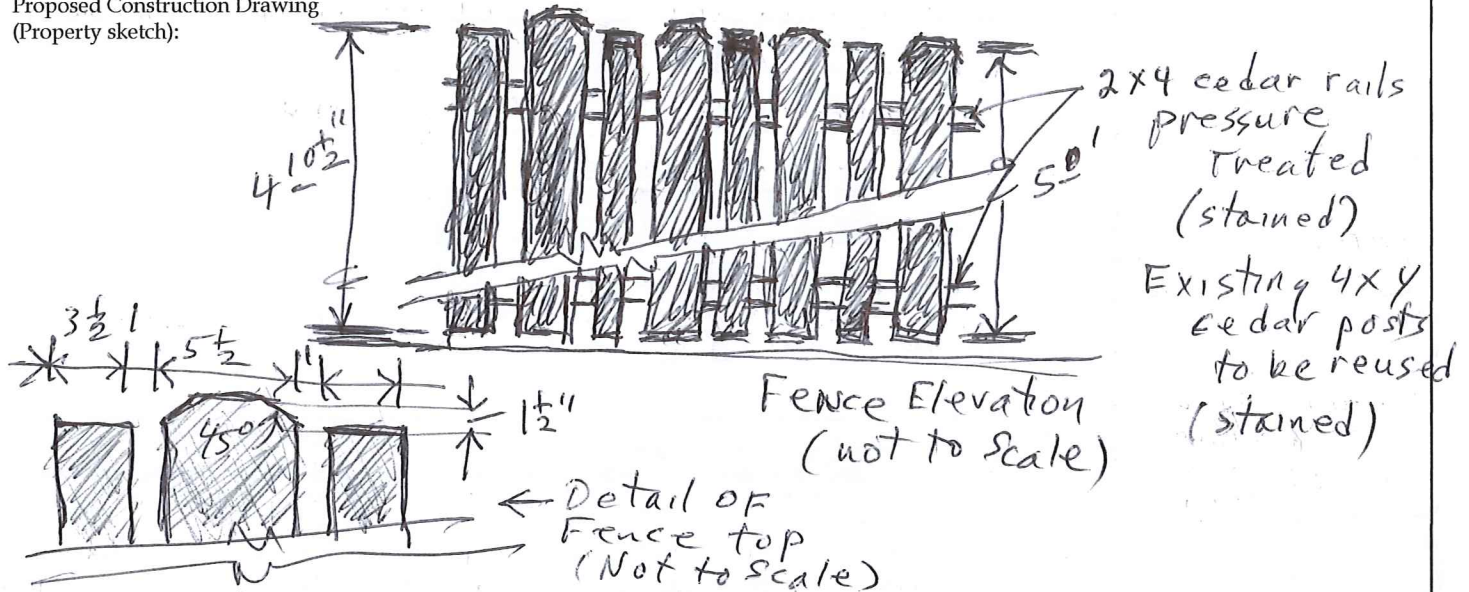 Proposed Construction Drawing
(Property sketch):
4 10½"
2x4 cedar rails
pressure
Treated
(stained)
5 0'
Existing 4x4
cedar posts
to be reused
(stained)
3½ 1 5½ 1"
45°
1½"
Fence Elevation
(not to scale)
← Detail of
Fence top
(Not to scale)